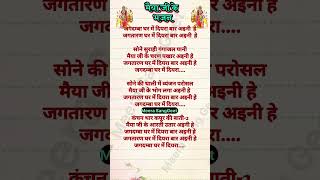 मैया जी के
भजन
जगदम्बा घर में दियरा बार अइनी हे
जगतारण घर में दियरा बार अइनी हे
सोने सुराही गंगाजल पानी
मैया जी के चरण पखार अइनी हे
जगतारण घर में दियरा बार अइनी हे
जगदम्बा घर में दियरा....
सोने की थाली में व्यंजन परोसल
मैया जी के भोग लगा अइनी हे
जगतारण घर में दियरा बार अइनी हे
जगदम्बा घर में दियरा....
कंचन थार कपूर की बाती-2
मैया जी के आरती उतार अइनी हे
जगदम्बा घर में दियरा बार अइनी हे
जगतारण घर में दियरा बार अइनी हे
जगदम्बा घर में दियरा....